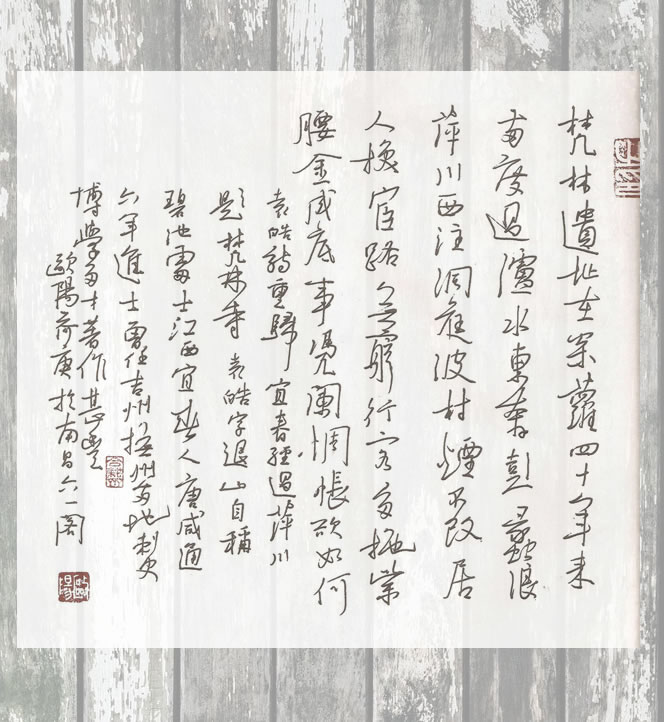 梵林遺址在松蘿四十年來
兩度過瀘水東奔彭蠡浪
萍川西注洞庭波村煙不改居
人換官路無窮行客多拖紫
腰金成底事憑闌惆悵欲如何
袁皓詩重歸宜春經過萍川
題梵林寺袁皓字退山自稱
碧池處士江西宜春人唐咸通
六年進士曾任吉州撫州等地刺史
博學多才著作甚豐
歐陽荷庚於南昌六一閣